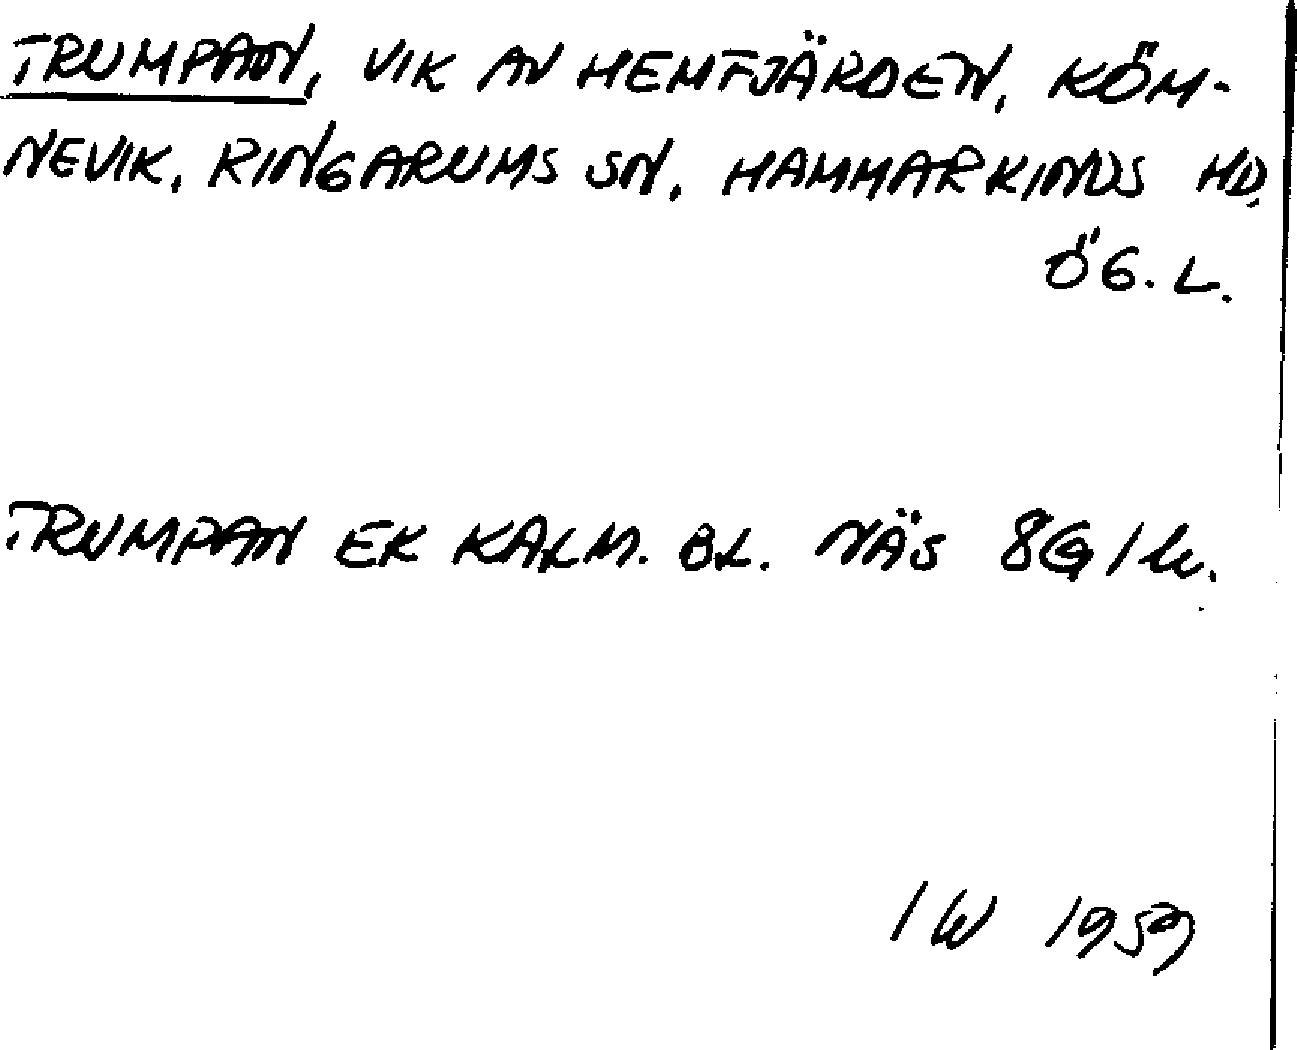 TRUMPAN, VIK AV HEMFJÄRDEN, KÖM-
NEVIK, RINGARUMS SN, HAMMARKINDS HD,
ÖG. L.
TRUMPAN EK KALM. BL. NÄS 8G
IW 1959